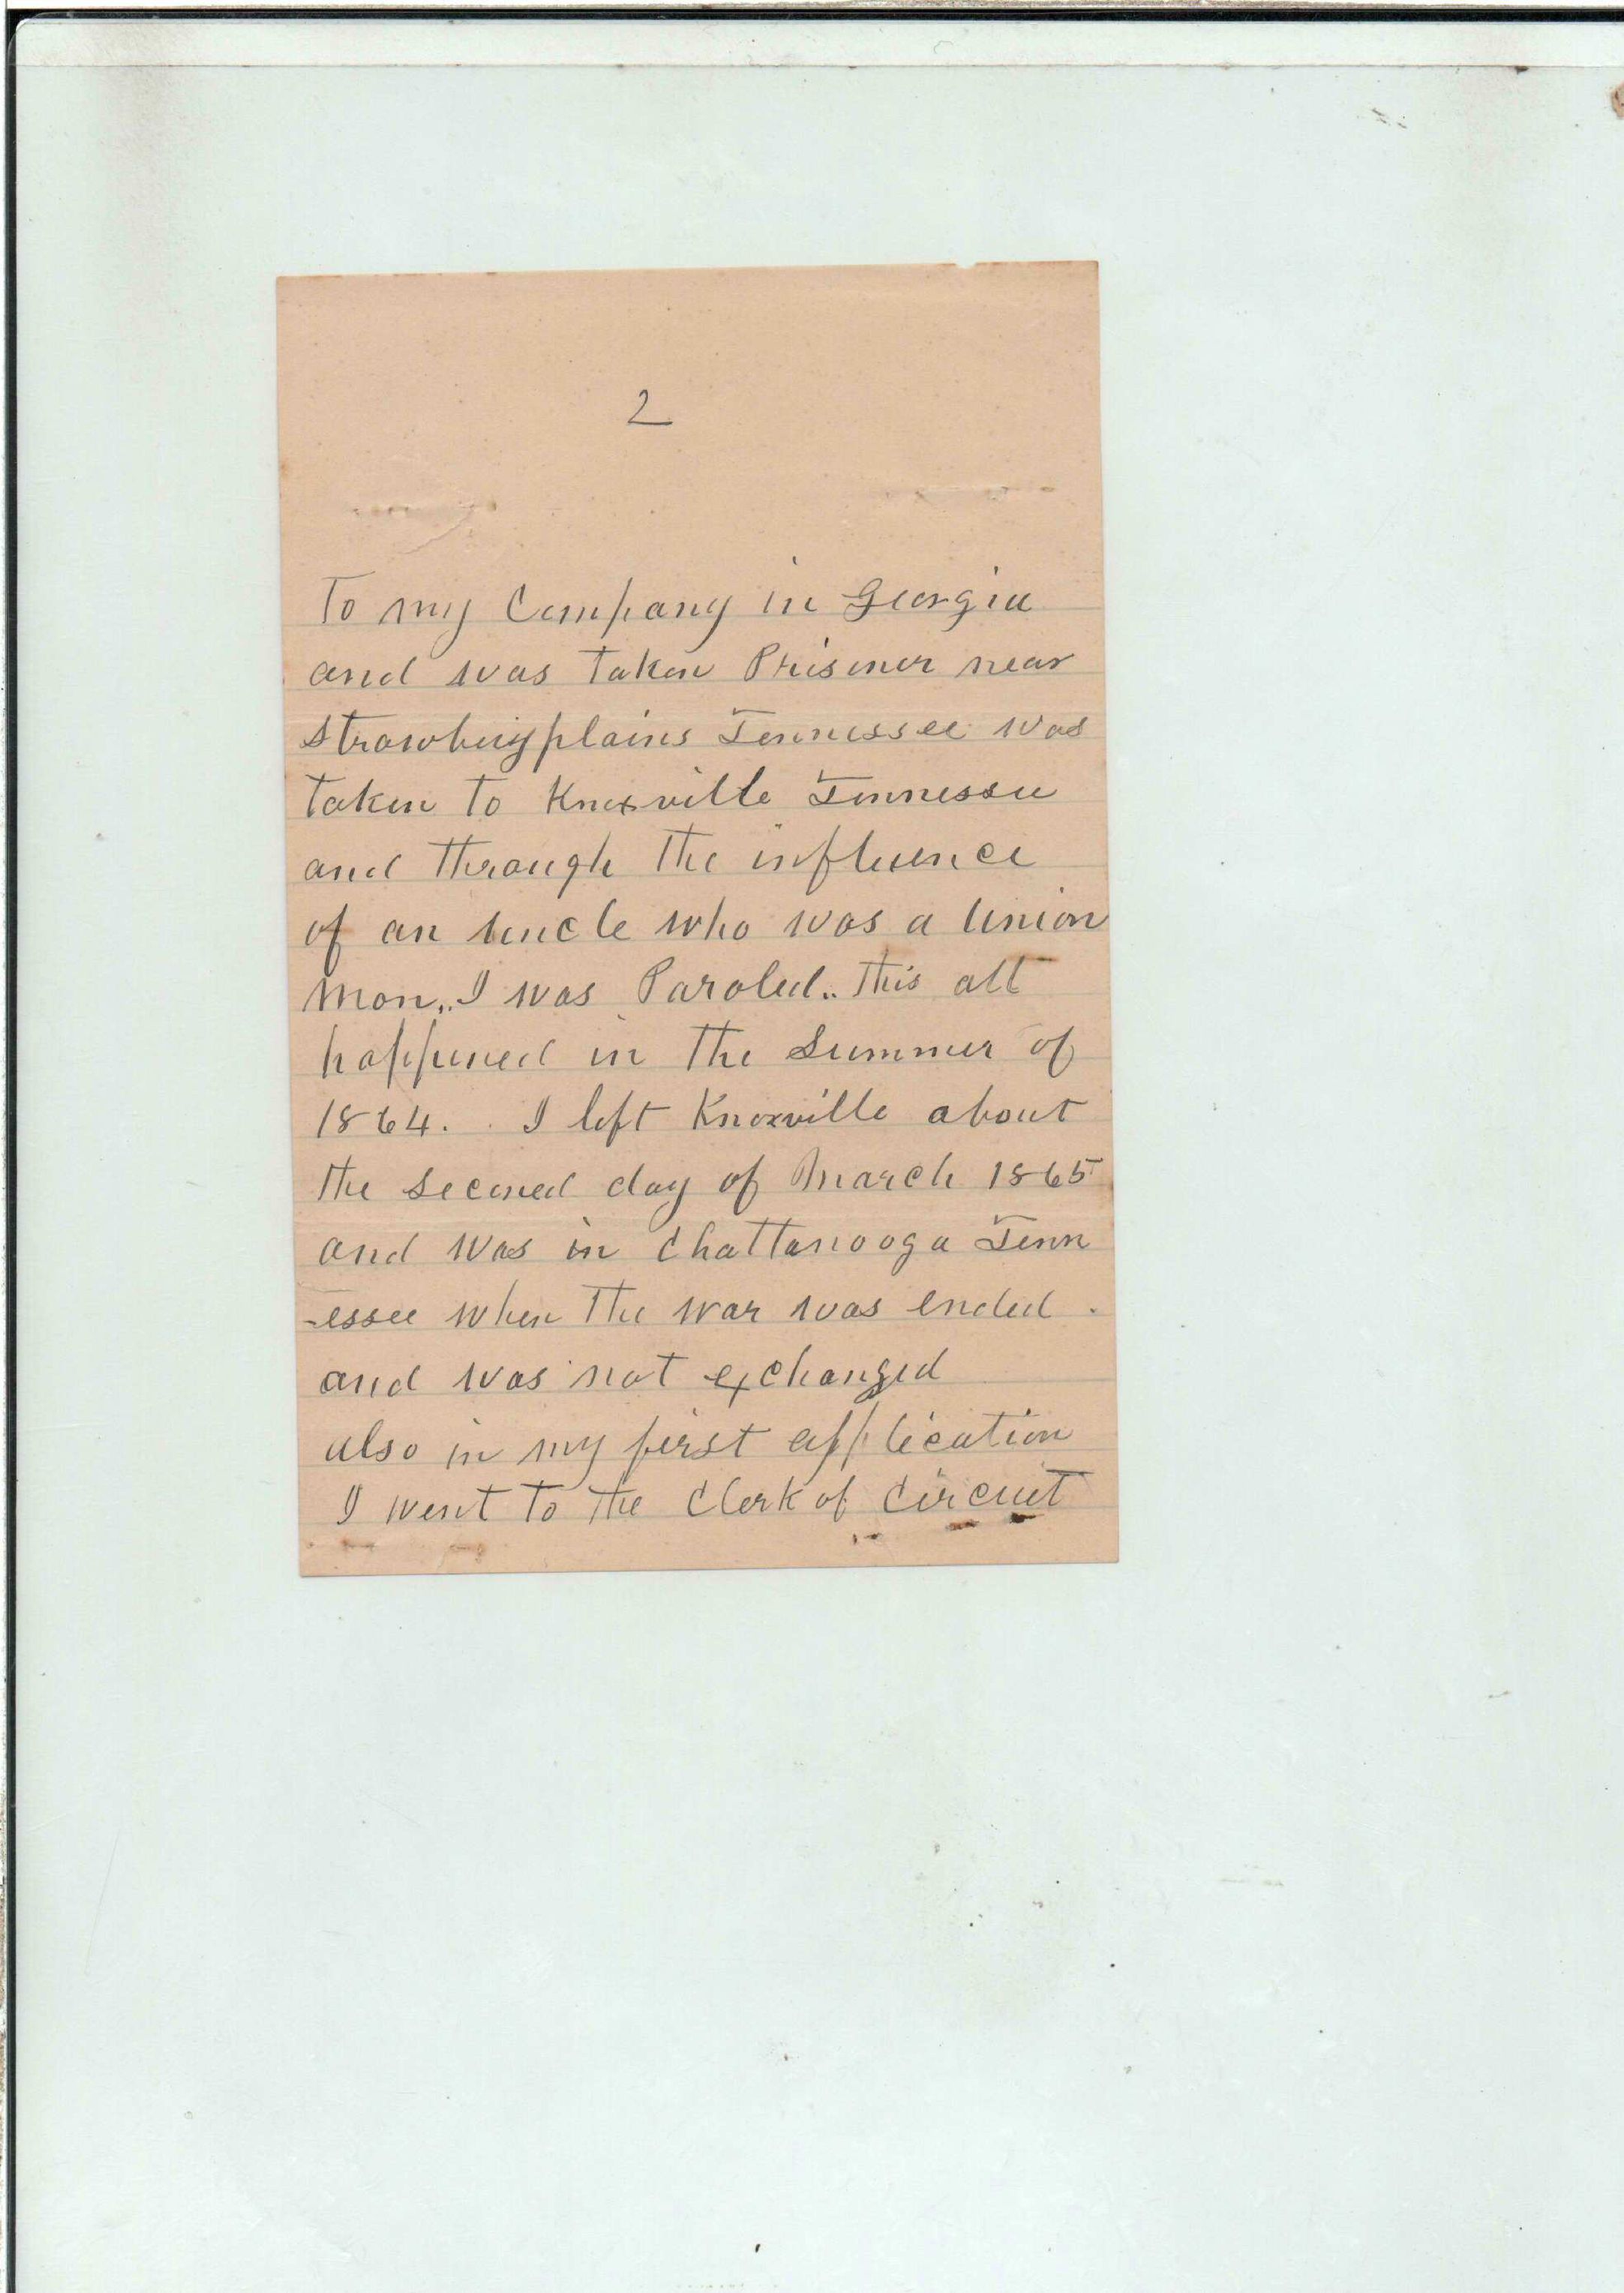 2
To my Company in Georgia
and was taken Prisoner near
Strawberryplains Tennessee was
taken to Knoxville Tennessee
and through the influence
of an uncle who was a Union
man,. I was Paroled.. This all
happened in the Summer of
1864. . I left Knoxville about
the second day of March 1865
and was in Chattanooga Tenn
-essee when the war was ended .
and was not exchanged
also in my first application
I went to the Clerk of Circuit